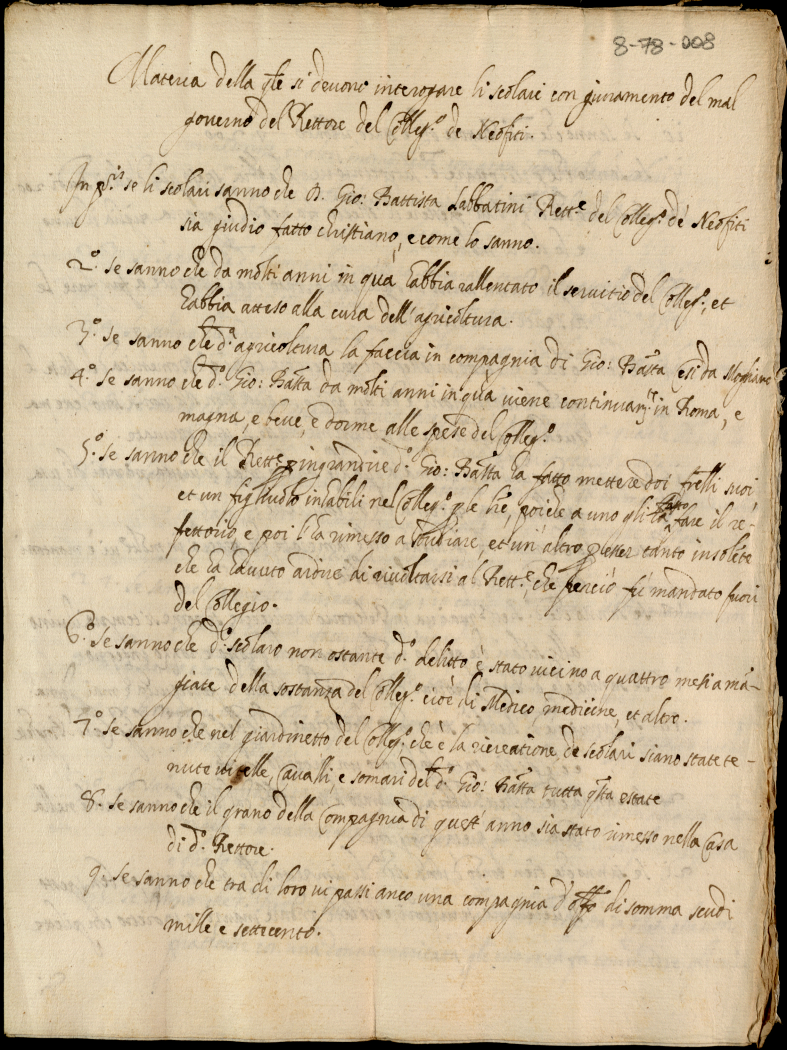 8-78-008
Materia della qle si devono interogare li scolari con giuramento del mal
governo del Rettore del Colleg.o de Neofiti.
In p.is se li scolari sanno che D. Gio: Battista Sabbatini Rett.e del Colleg.o de Neofiti
sia giudio fatto christiano, e come lo sanno.
2.o Se sanno che da molti anni in quà habbia rallentato il servitio del Colleg.o, et
habbia atteso alla cura dell'agricoltura.
3.o Se sanno che d.a agricoltura la faccia in compagnia di Gio: Batta da Mogliano
4.o Se sanno che d.o Gio: Batta da molti anni in quà viene continuam.te in Roma, e
magna, e beve, e dorme alle spese del Colleg.o
5.o Se sanno che il Rett.e p ingrandire d.o Gio: Batta ha fatto mettere doi frelli suoi
et un figliuolo inhabili nel Colleg.o p le, poiche a uno gli ha fatto fare il re-
fettorio, e poi l'ha rimesso a studiare, et un'altro p esser tanto insolete
che ha havuto ardire di rivoltarsi al Rett.e, che perciò fù mandato fuori
del Collegio.
6.o Se sanno che d.o scolaro non ostante d.o delitto è stato vicino a quattro mesi a ma-
giare della sostanza del Colleg.o cioè di Medico, medicine, et altro.
7.o Se sanno che nel giardinetto del Colleg.o che è la ricreatione de scolari siano state te-
nute vitelle, Cavalli, e somari del d.o Gio: Batta tutta qsta estate
8. Se sanno che il grano della Compagnia di quest'anno sia stato rimesso nella Casa
di d.o Rettore.
9. Se sanno che tra di loro vi passi anco una compagnia d' di somma scudi
mille e settecento.